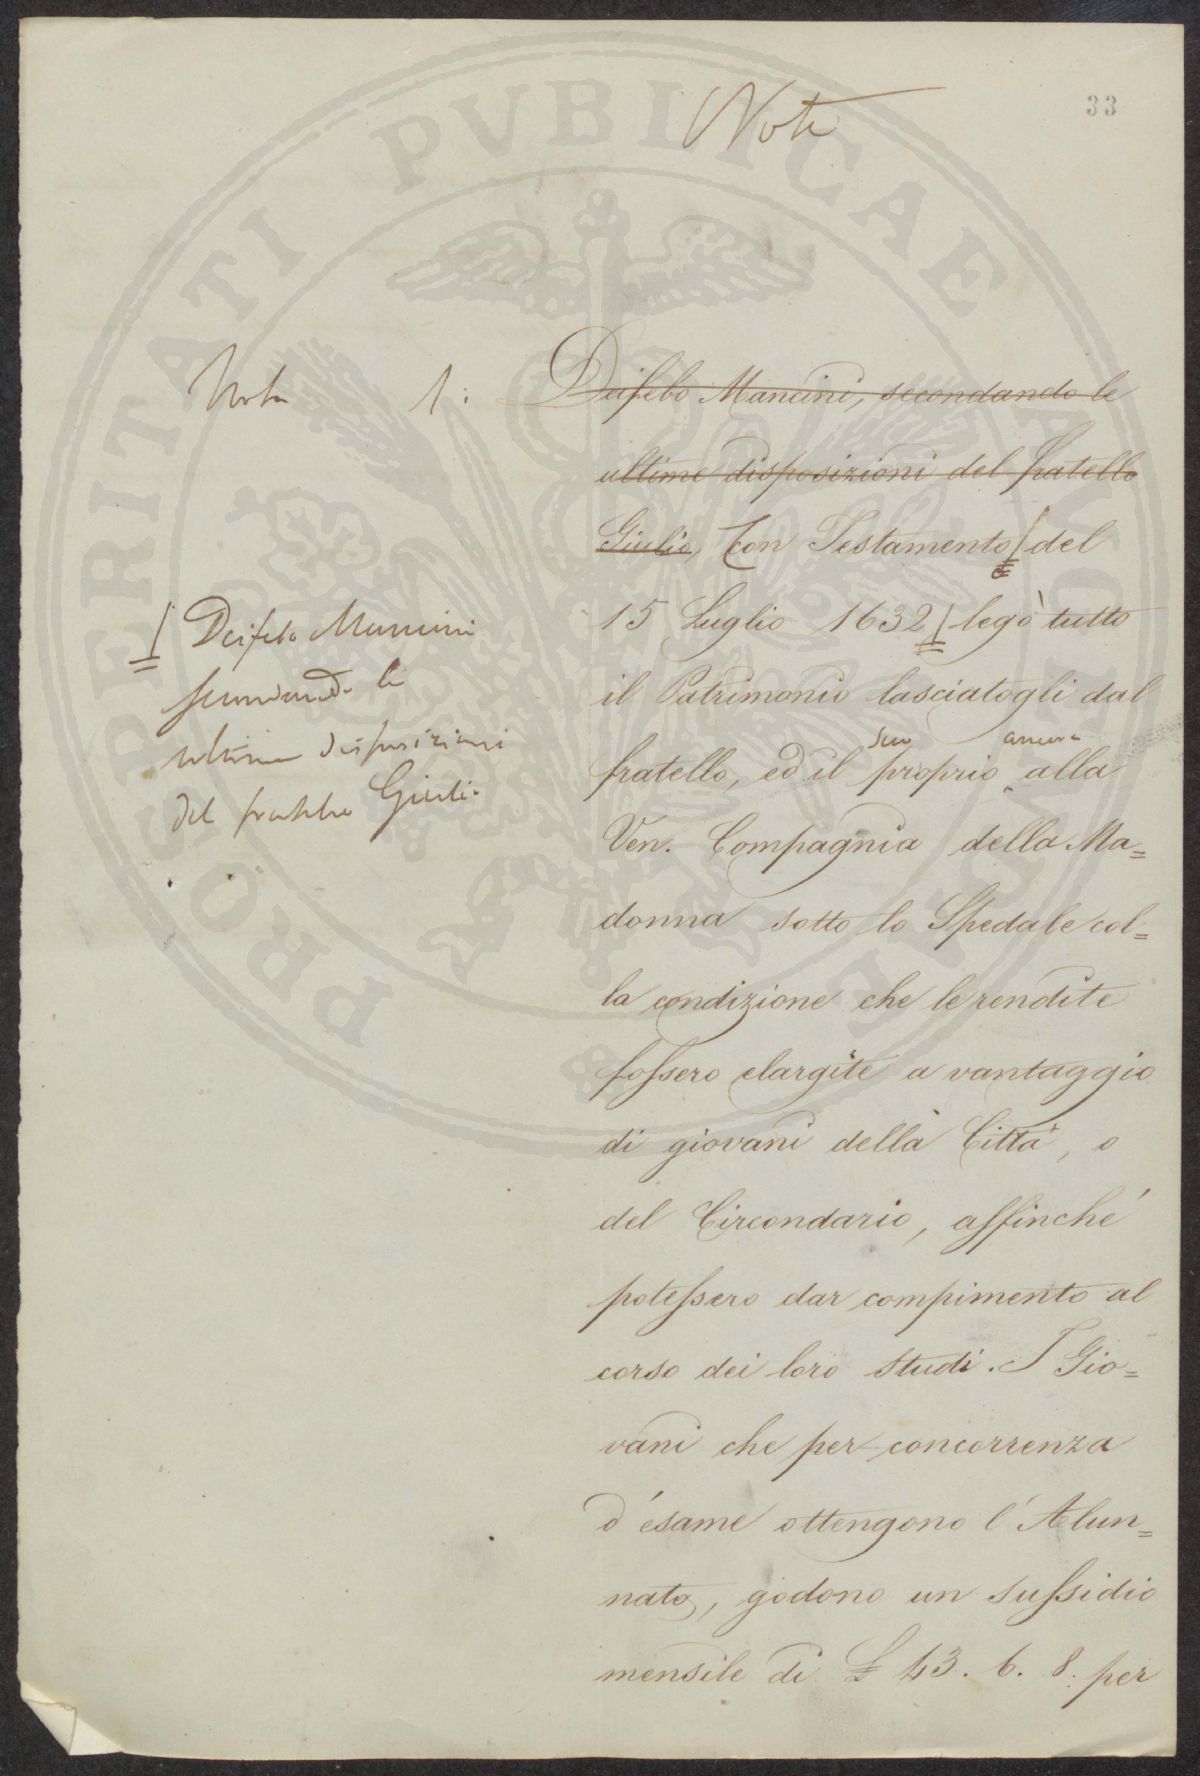 Note
33
Nota 1:
Deifebo Mancini, secondando le
ultime disposizioni del fratello
Giulio, Con Testamento del
15 Luglio 1632 legò tutto
il Patrimonio lasciatogli dal
suo ancora
fratello, ed il proprio alla
Ven. Compagnia della Ma=
donna sotto lo Spedale col=
la condizione che le rendite
fossero elargite a vantaggio
di giovani della Città, o
del Circondario, affinchè
potessero dar compimento al
corso dei loro studi. I Gio=
vani che per concorrenza
d'esame ottengono l'Alun=
nato, godono un sussidio
mensile di £ 43. 6. 8. per
Deifebo Mancini
secondando le
ultime disposizioni
del fratello Giulio
PROSPERITATI PVBLICAE